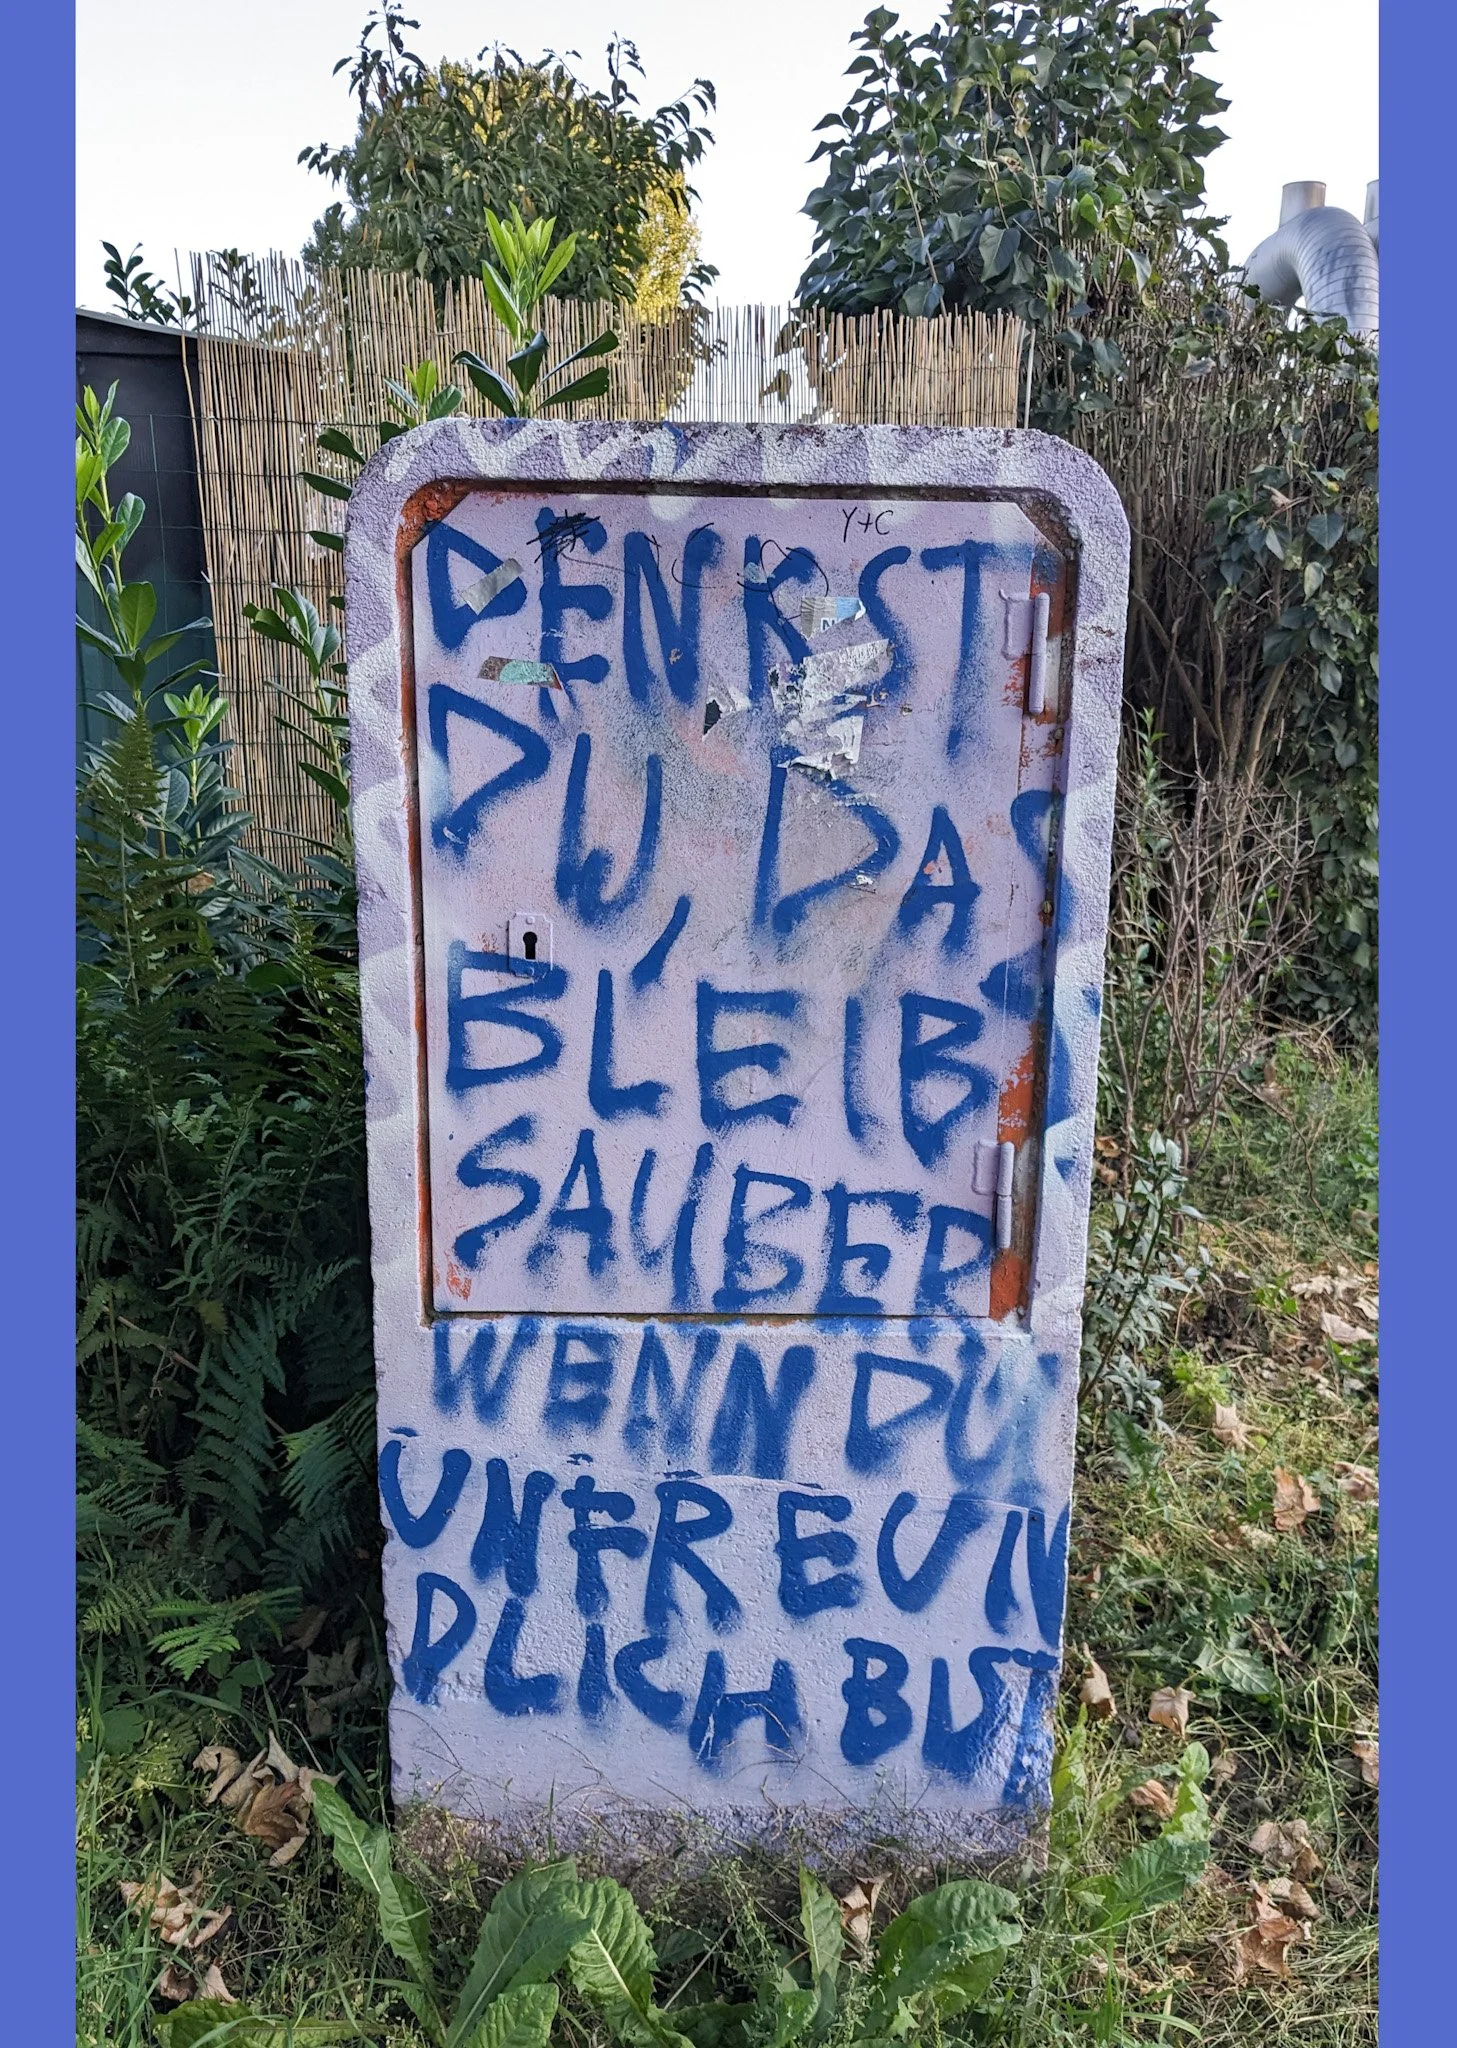 Y+C
DENKST
DU, DAS
BLEIBT
SAUBER
WENN DU
UNFREUN
DLICH BIST